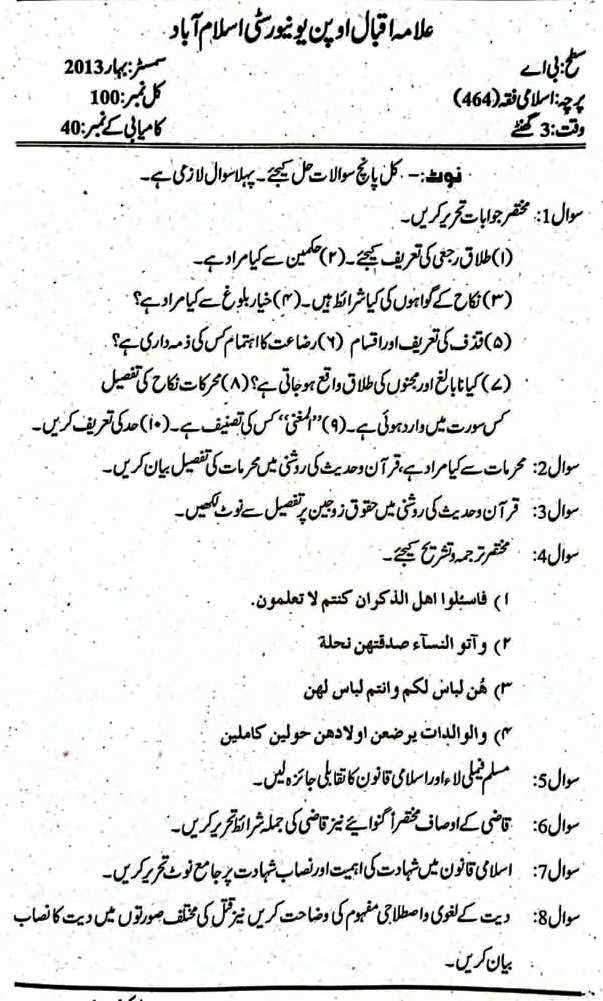 علامہ اقبال اوپن یونیورسٹی اسلام آباد
سطح: بی اے سمسٹر: بہار 2013
پرچہ: اسلامی فقہ (464) کل نمبر: 100
وقت: 3 گھنٹے کامیابی کے نمبر: 40
نوٹ:- کل پانچ سوالات حل کیجئے۔ پہلا سوال لازمی ہے۔
سوال 1: مختصر جوابات تحریر کریں۔
(۱) طلاق رجعی کی تعریف کیجئے۔ (۲) حکمین سے کیا مراد ہے۔
(۳) نکاح کے گواہوں کی کیا شرائط ہیں۔ (۴) خیار بلوغ سے کیا مراد ہے؟
(۵) قذف کی تعریف اور اقسام (۶) رضاعت کا اہتمام کس کی ذمہ داری ہے؟
(۷) کیا نابالغ اور مجنوں کی طلاق واقع ہو جاتی ہے؟ (۸) محرکات نکاح کی تفصیل
کس سورت میں وارد ہوئی ہے۔ (۹) "المغنی" کس کی تصنیف ہے۔ (۱۰) حد کی تعریف کریں۔
سوال 2: محرمات سے کیا مراد ہے، قرآن و حدیث کی روشنی میں محرمات کی تفصیل بیان کریں۔
سوال 3: قرآن و حدیث کی روشنی میں حقوق زوجین پر تفصیل سے نوٹ لکھیں۔
سوال 4: مختصر ترجمہ و تشریح کیجئے۔
۱) فاسئلوا اهل الذكران كنتم لا تعلمون.
۲) وآتو النسآء صدقتهن نحلة
۳) هُن لباس لكم وانتم لباس لهن
۴) والوالدات يرضعن اولادهن حولين كاملين
سوال 5: مسلم فیملی لاء اور اسلامی قانون کا تقابلی جائزہ لیں۔
سوال 6: قاضی کے اوصاف مختصراً گنوائیے نیز قاضی کی جملہ شرائط تحریر کریں۔
سوال 7: اسلامی قانون میں شہادت کی اہمیت اور نصاب شہادت پر جامع نوٹ تحریر کریں۔
سوال 8: دیت کے لغوی و اصطلاحی مفہوم کی وضاحت کریں نیز قتل کی مختلف صورتوں میں دیت کا نصاب
بیان کریں۔